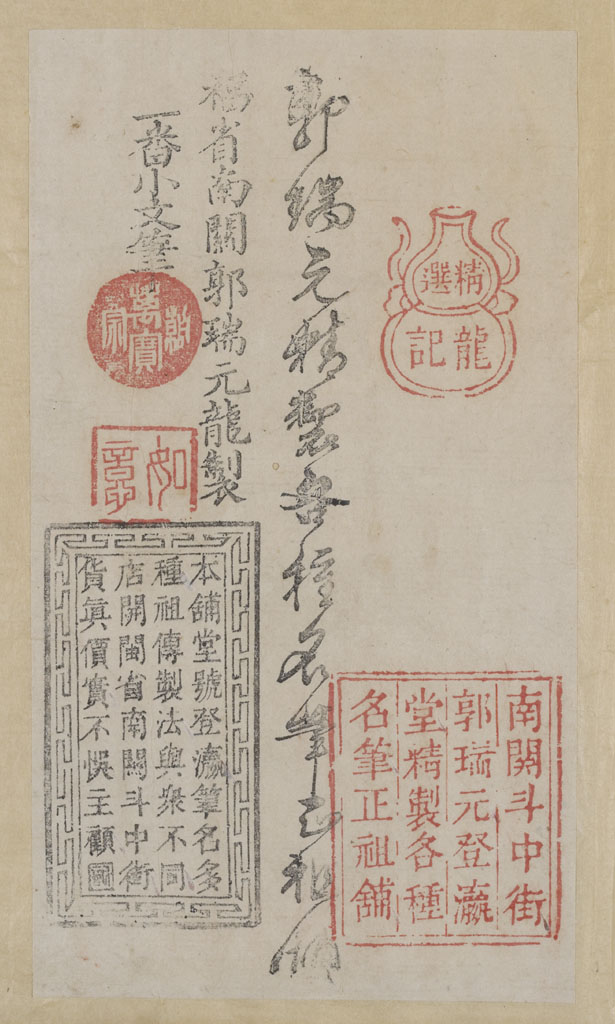 精選
龍記
南関斗中街
郭瑞元登瀛
堂精製各種
名筆正祖舖
郭瑞元精製各種名筆正祖舖
福省南關郭瑞元龍製
一番小文筆
萬寶
如意
本舖堂號登瀛筆名多
種祖傳製法與衆不同
店開閩省南関斗中街
貨真價實不悞主顧